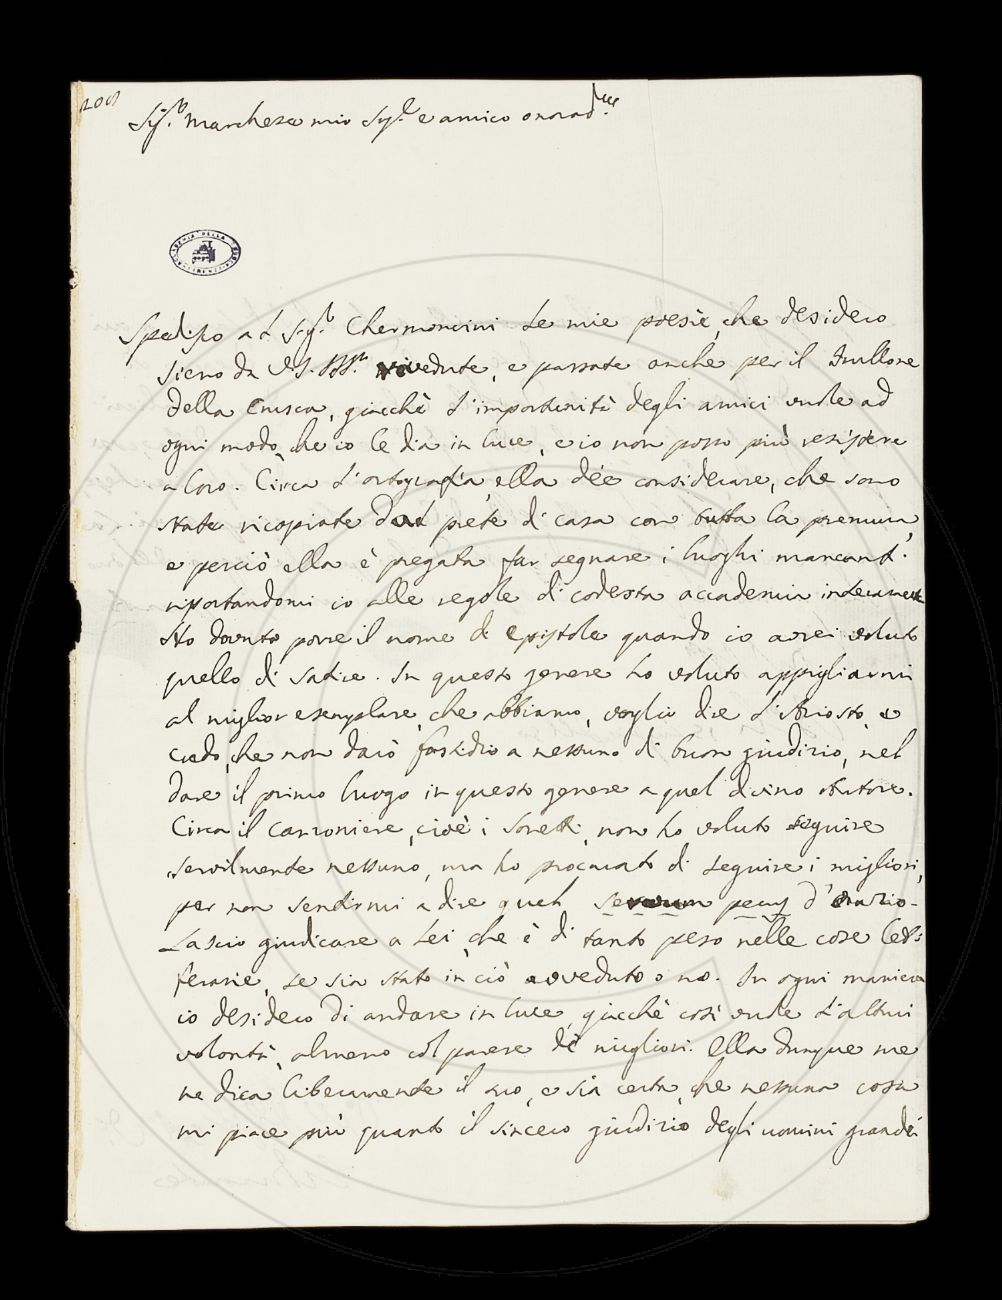 200
Sig.r Marchese mio Sig.e e amico onorad.mo
ACCADEMIA DELLA CRUSCA
Spedisco al Sig.r Chermoncini le mie poesie, che desidero
sieno da V.S. Ill.ma rivedute, e passate anche per il Frullone
della Crusca, giacchè l'importunità degli amici vuole ad
ogni modo, che io le dia in luce, e io non posso più resistere
a loro. Circa l'ortografia, ella dèe considerare, che sono
state ricopiate dal prete di casa con tutta la premura,
e perciò ella è pregata far segnare i luoghi mancanti.
riportandomi io alle regole di codesta accademia interamente
Ho dovuto porre il nome di epistole quando io avrei voluto
quello di satire. In questo genere ho voluto appigliarmi
al miglior esemplare, che abbiamo, voglio dire l'Ariosto, e
credo, che non darò fastidio a nessuno di buon giudizio, nel
dare il primo luogo in questo genere a quel divino Autore.
Circa il canzoniere, cioè i sonetti, non ho voluto seguire
servilmente nessuno, ma ho procurato di seguire i migliori,
per non sentirmi a dire quel servum pecus d'Orazio.
Lascio giudicare a Lei, che è di tanto peso nelle cose let-
terarie, se sia stato in ciò avveduto o no. In ogni maniera
io desidero di andare in luce, giacchè così vuole l'altrui
volontà, almeno col parere de' migliori. Ella dunque me
ne dica liberamente il suo, e sia certa, che nessuna cosa
mi piace più quanto il sincero giudizio degli uomini grandi